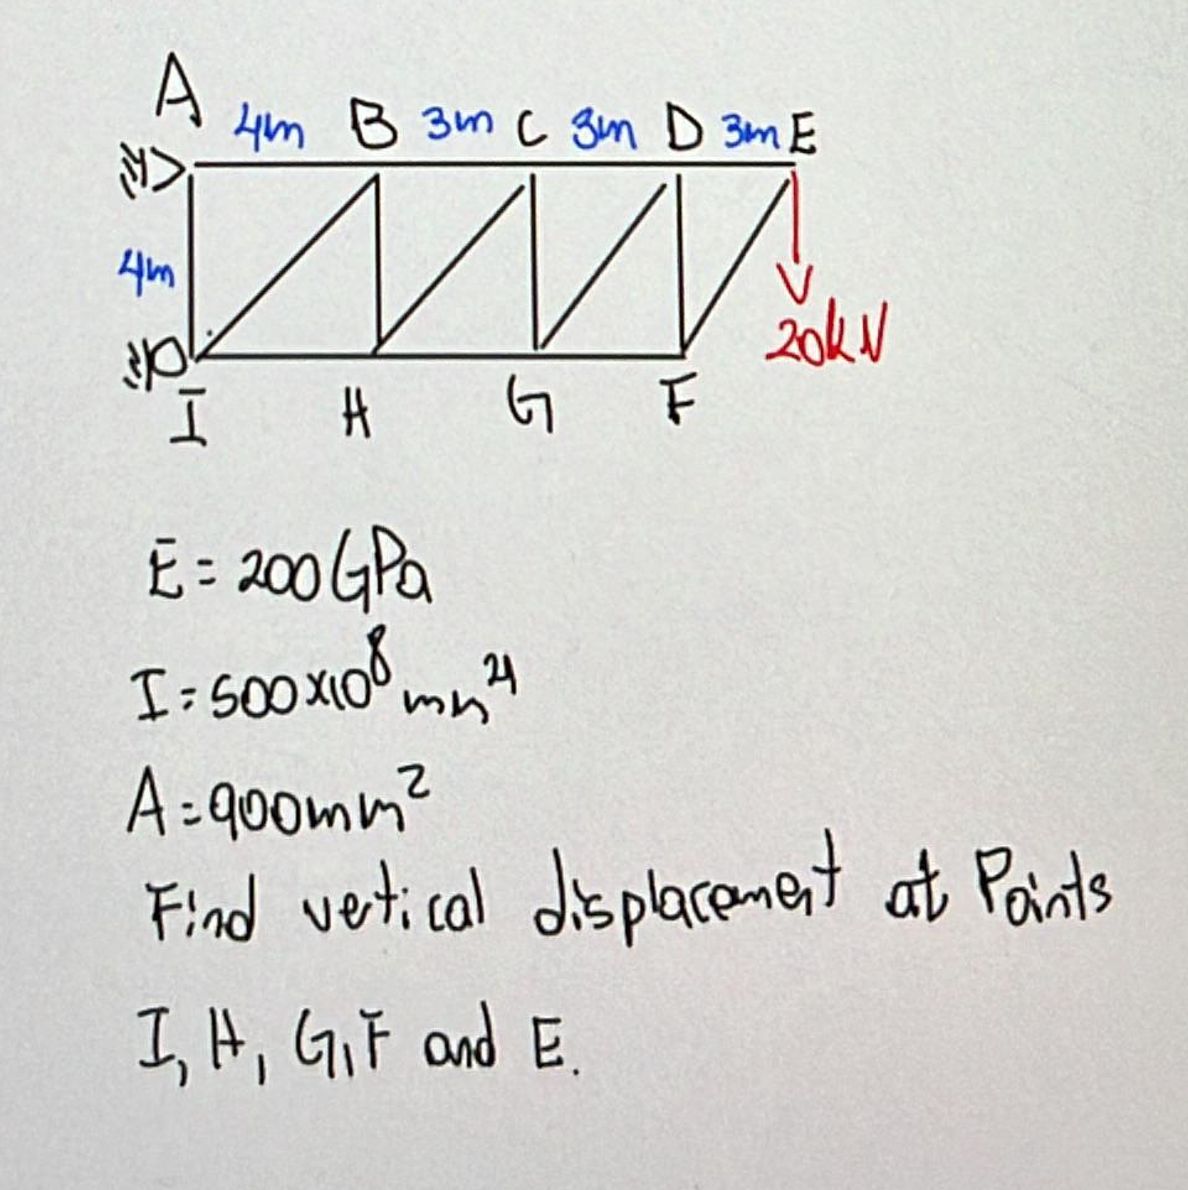 A 4m B 3m C 3m D 3m E
4m
20kN
I H G F
E = 200 GPa
I = 500x10⁸ mm⁴
A = 900mm²
Find vertical displacement at Points
I, H, G, F and E.